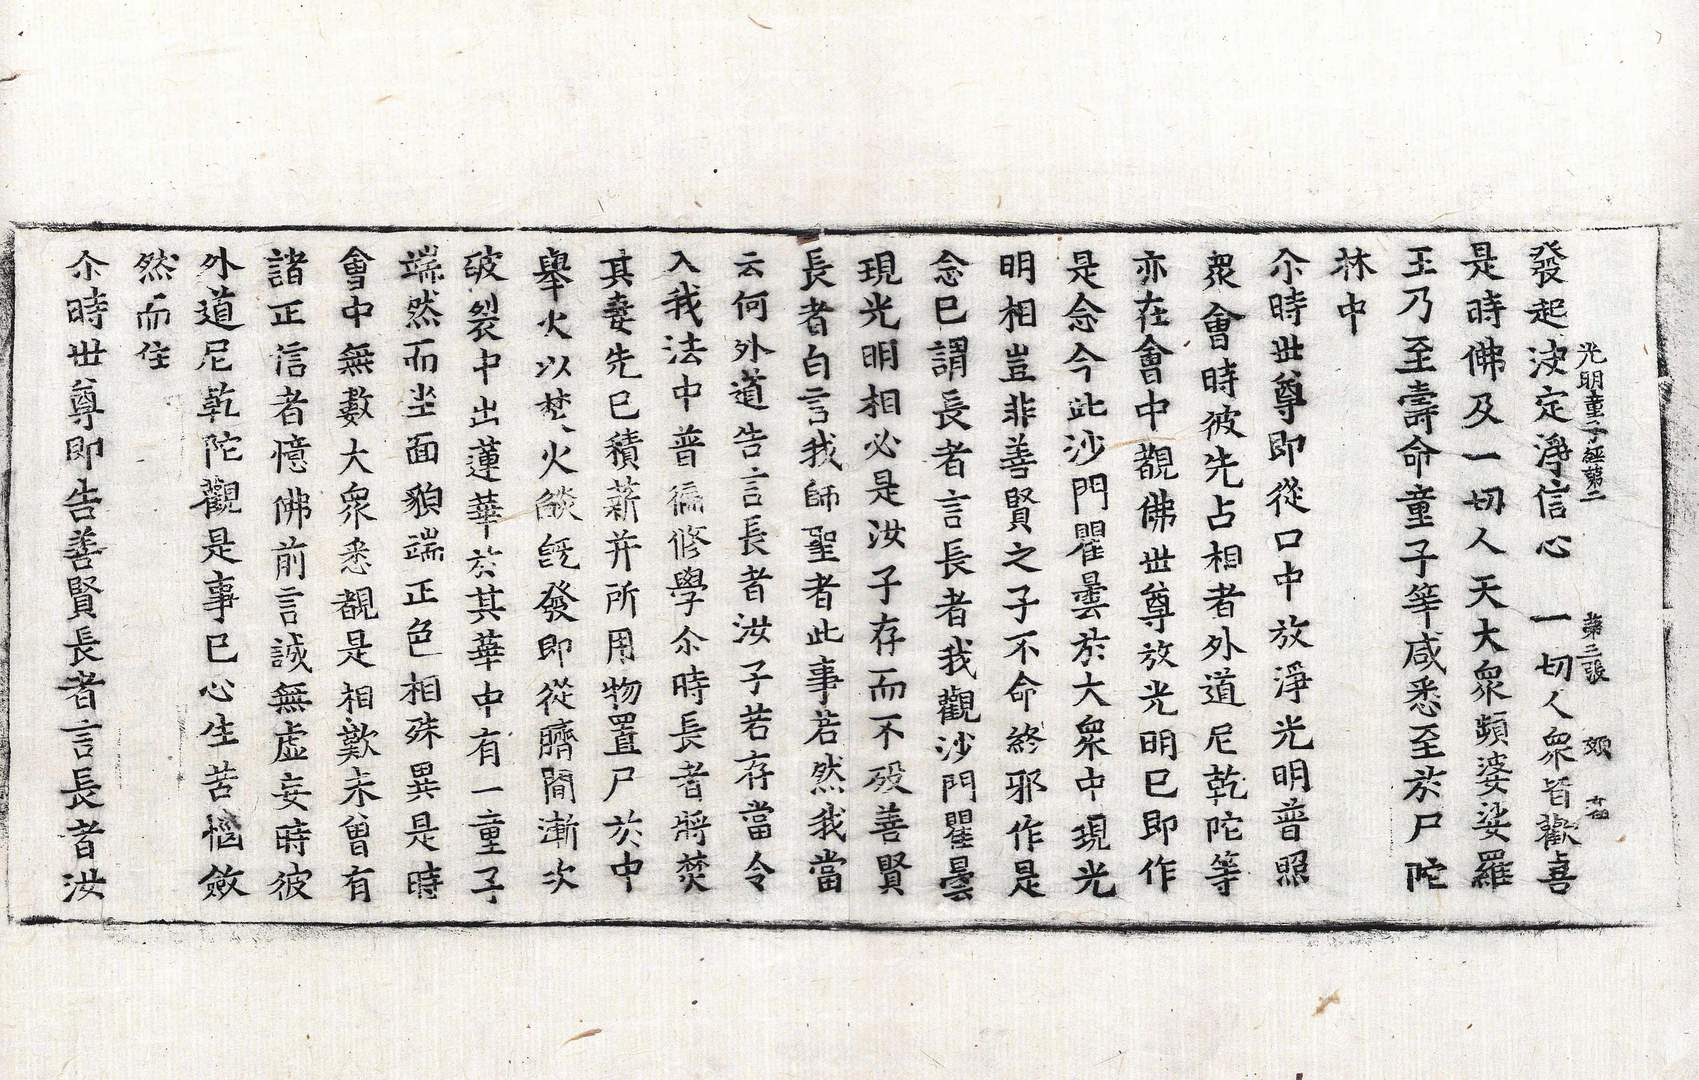 光明童子經第二　第三張　頗　十在
發起決定淨信心　一切人衆皆歡喜
是時佛及一切人天大衆頻婆娑羅
王乃至壽命童子等咸悉至於尸陀
林中
尒時世尊即從口中放淨光明普照
衆會時彼先占相者外道尼乾陀等
亦在會中覩佛世尊放光明已即作
是念今此沙門瞿曇於大衆中現光
明相豈非善賢之子不命終邪作是
念已謂長者言長者我觀沙門瞿曇
現光明相必是汝子存而不殁善賢
長者白言我師聖者此事若然我當
云何外道告言長者汝子若存當令
入我法中普徧修學尒時長者將焚
其妻先已積薪并所用物置尸於中
舉火以焚火燄旣發即從臍間漸次
破裂中出蓮華於其華中有一童子
端然而坐面貌端正色相殊異是時
會中無數大衆悉覩是相歎未曾有
諸正信者憶佛前言誠無虛妄時彼
外道尼乾陀觀是事已心生苦惱斂
然而住
尒時世尊即告善賢長者言長者汝